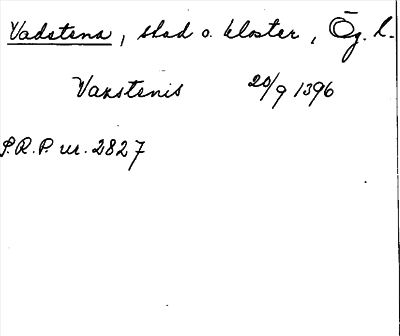 Vadstena, stad o. kloster, Ög. l.
Vaxstenis 20/9 1396
S.R.P. nr. 2827